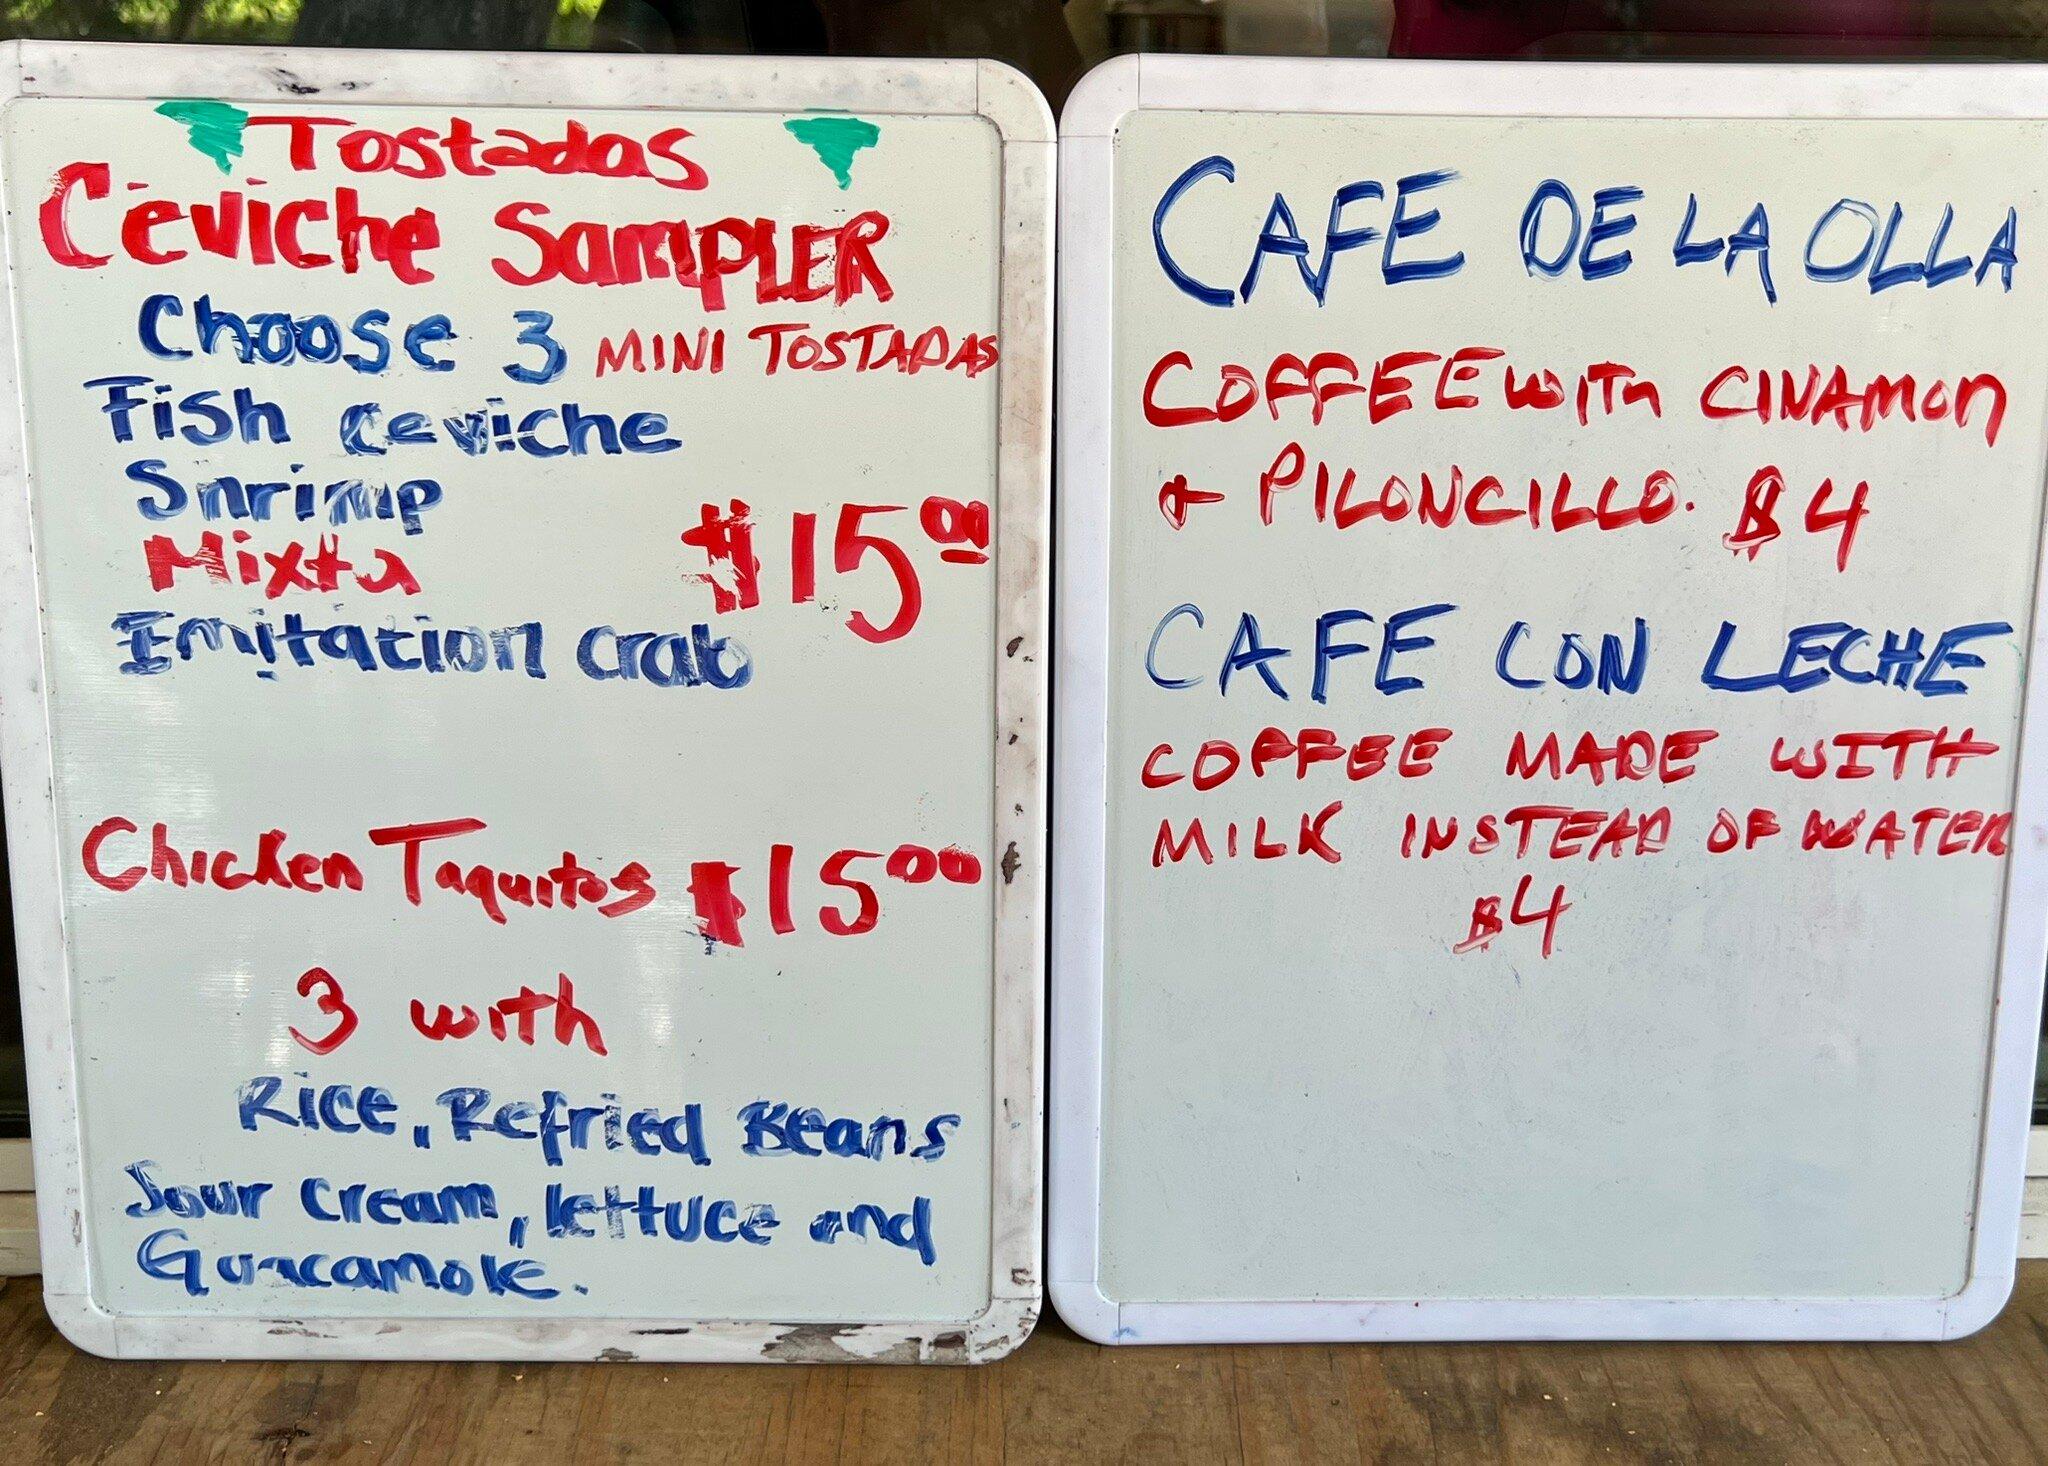 Tostadas
Ceviche SamPLER
Choose 3 MINI TOSTADAS
Fish ceviche
Shrimp
Mixta $15.00
Imitation crab
Chicken Taquitos $15.00
3 with
Rice, Refried Beans
Sour cream, lettuce and
Guacamole.
CAFE DE LA OLLA
COFFEE with CINAMON
& PILONCILLO. $4
CAFE CON LECHE
COFFEE MADE WITH
MILK INSTEAD OF WATER
$4